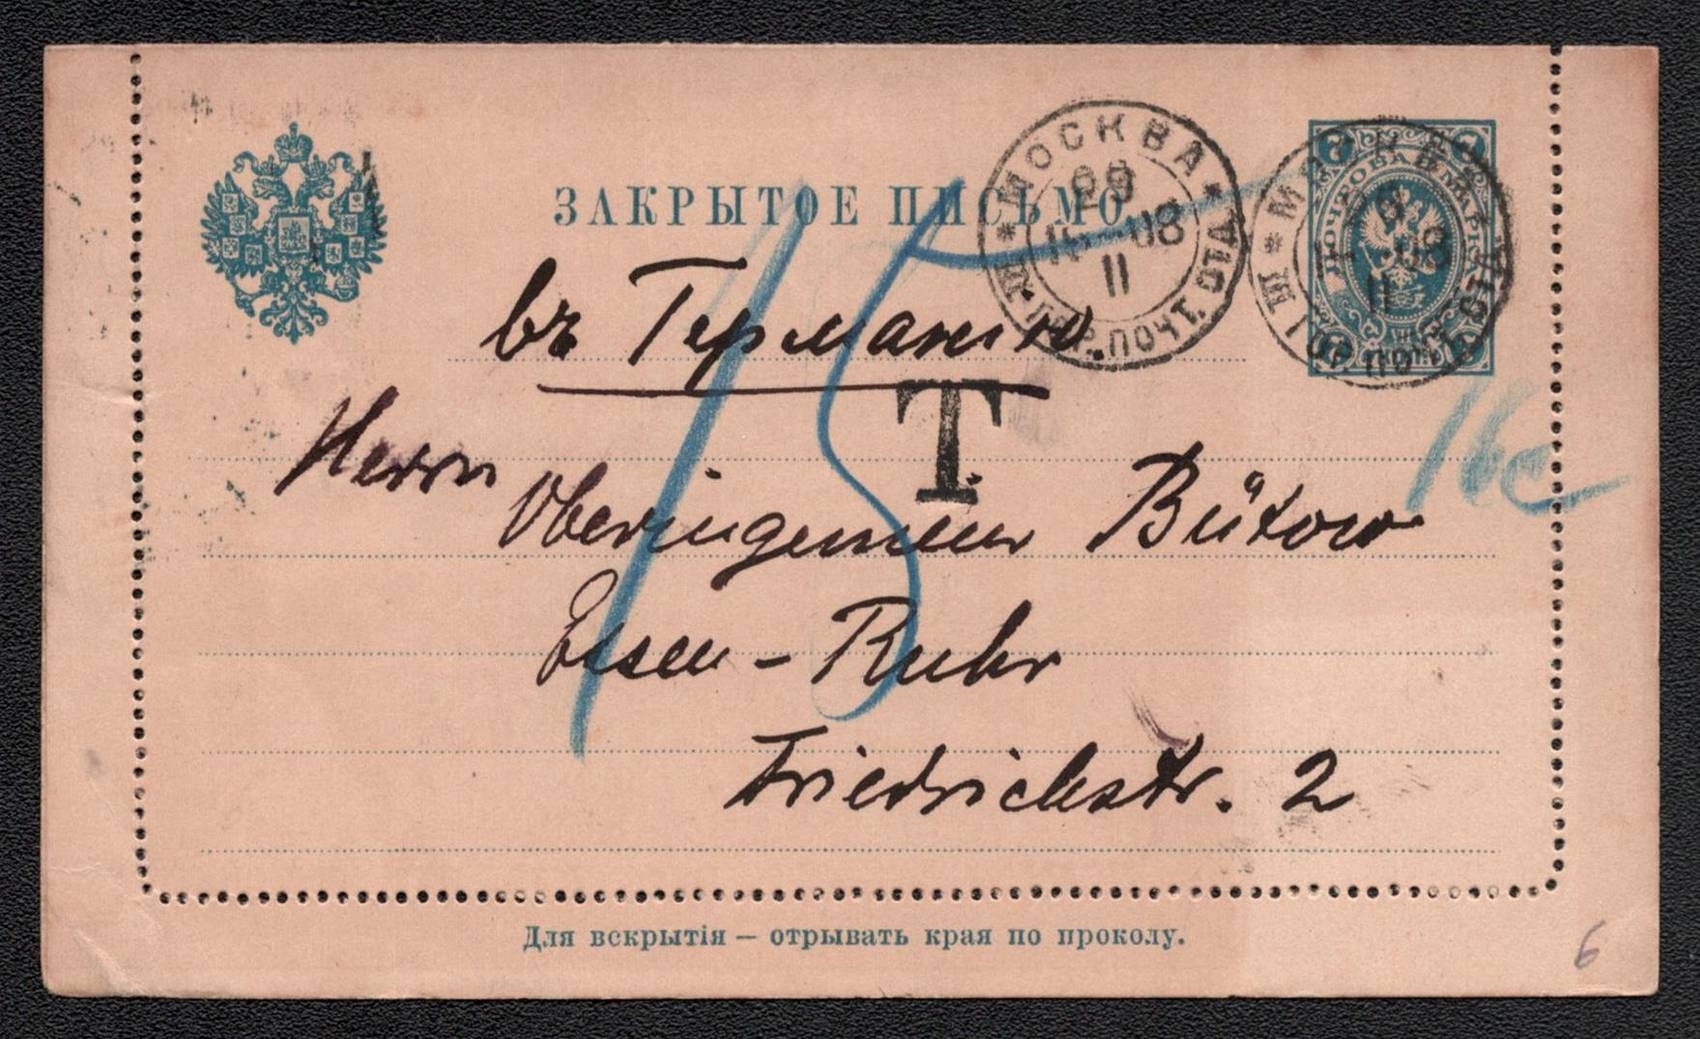 ЗАКРЫТОЕ ПИСЬМО
МОСКВА
08
11
ПОЧТ. ОТД.
МОСКВА
08
11
ПОЧТОВАЯ МАРКА
7 7
въ Германію.
15
T.
16c
Herrn
Oberingenieur Bütow
Essen - Ruhr
Friedrichstr. 2
Для вскрытія — отрывать края по проколу.
6